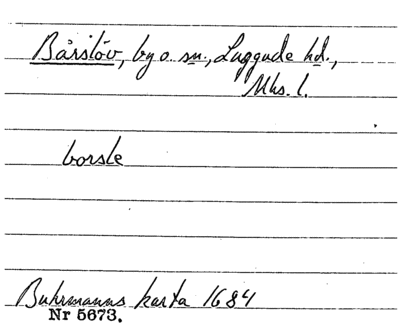 Bårslöv, by o. sn., Luggude hd.,
Mhs. l.
borsle
Buhrmanns karta 1684
Nr 5673.